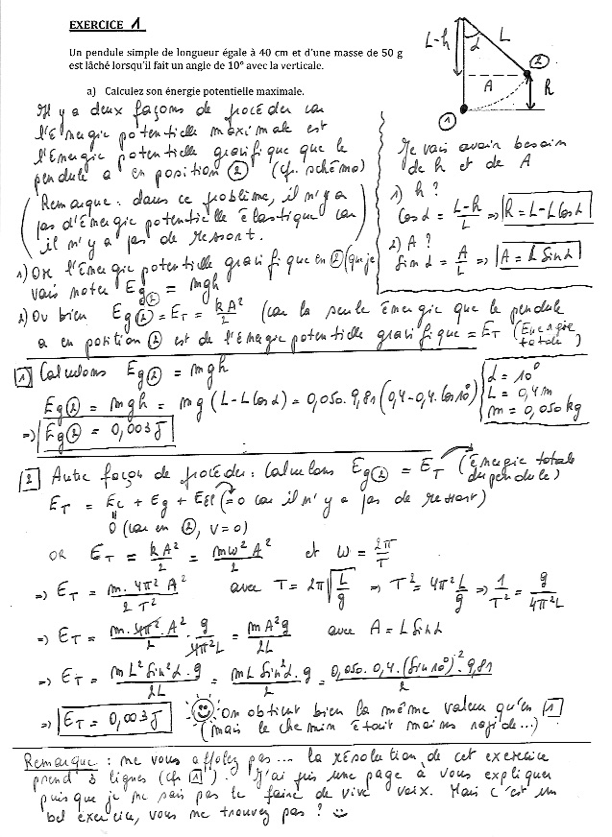 EXERCICE 1
Un pendule simple de longueur égale à 40 cm et d'une masse de 50 g
est lâché lorsqu'il fait un angle de 10° avec la verticale.
a) Calculez son énergie potentielle maximale.
L-h
α
L
2
A
h
1
Il y a deux façons de procéder car
l'Energie potentielle maximale est
l'Energie potentielle gravifique que le
pendule a en position ② (cfr. schéma)
(Remarque : dans ce problème, il n'y a
pas d'Energie potentielle élastique car
il n'y a pas de ressort.)
1) OR l'Energie potentielle gravifique en ② (que je
vais noter Eg② = mgh
2) Ou bien Eg② = ET = kA²/2 (car la seule énergie que le pendule
a en position ② est de l'énergie potentielle gravifique = ET (Energie totale)
Je vais avoir besoin
de h et de A
1) h ?
Cos α = (L-h)/L => h = L-L Cos α
2) A ?
Sin α = A/L => A = L Sin α
1 Calculons Eg② = mgh
Eg② = mgh = mg (L-L Cos α) = 0,050. 9,81 (0,4-0,4. Cos 10°)
=> Eg② = 0,003 J
α = 10°
L = 0,4 m
m = 0,050 kg
2 Autre façon de procéder : Calculons Eg② = ET (énergie totale du pendule)
ET = Ec + Eg + Eél (= 0 car il n'y a pas de ressort)
0 (car en ②, v=0)
OR ET = kA²/2 = mω²A²/2 et ω = 2π/T
=> ET = m. 4π² A²/2 T² avec T = 2π√(L/g) => T² = 4π² L/g => 1/T² = g/4π²L
=> ET = m. 4π². A²/2 . g/4π²L = mA²g/2L avec A = L Sin α
=> ET = mL² Sin²α . g/2L = mL Sin²α . g/2 = 0,050. 0,4. (Sin 10°)². 9,81/2
=> ET = 0,003 J On obtient bien la même valeur qu'en 1
(mais le chemin était moins rapide...)
Remarque : ne vous affolez pas... la résolution de cet exercice
prend 3 lignes (cfr 1). J'ai pris une page à vous expliquer
puisque je ne sais pas le faire de vive voix. Mais c'est un
bel exercice, vous ne trouvez pas ? ☺